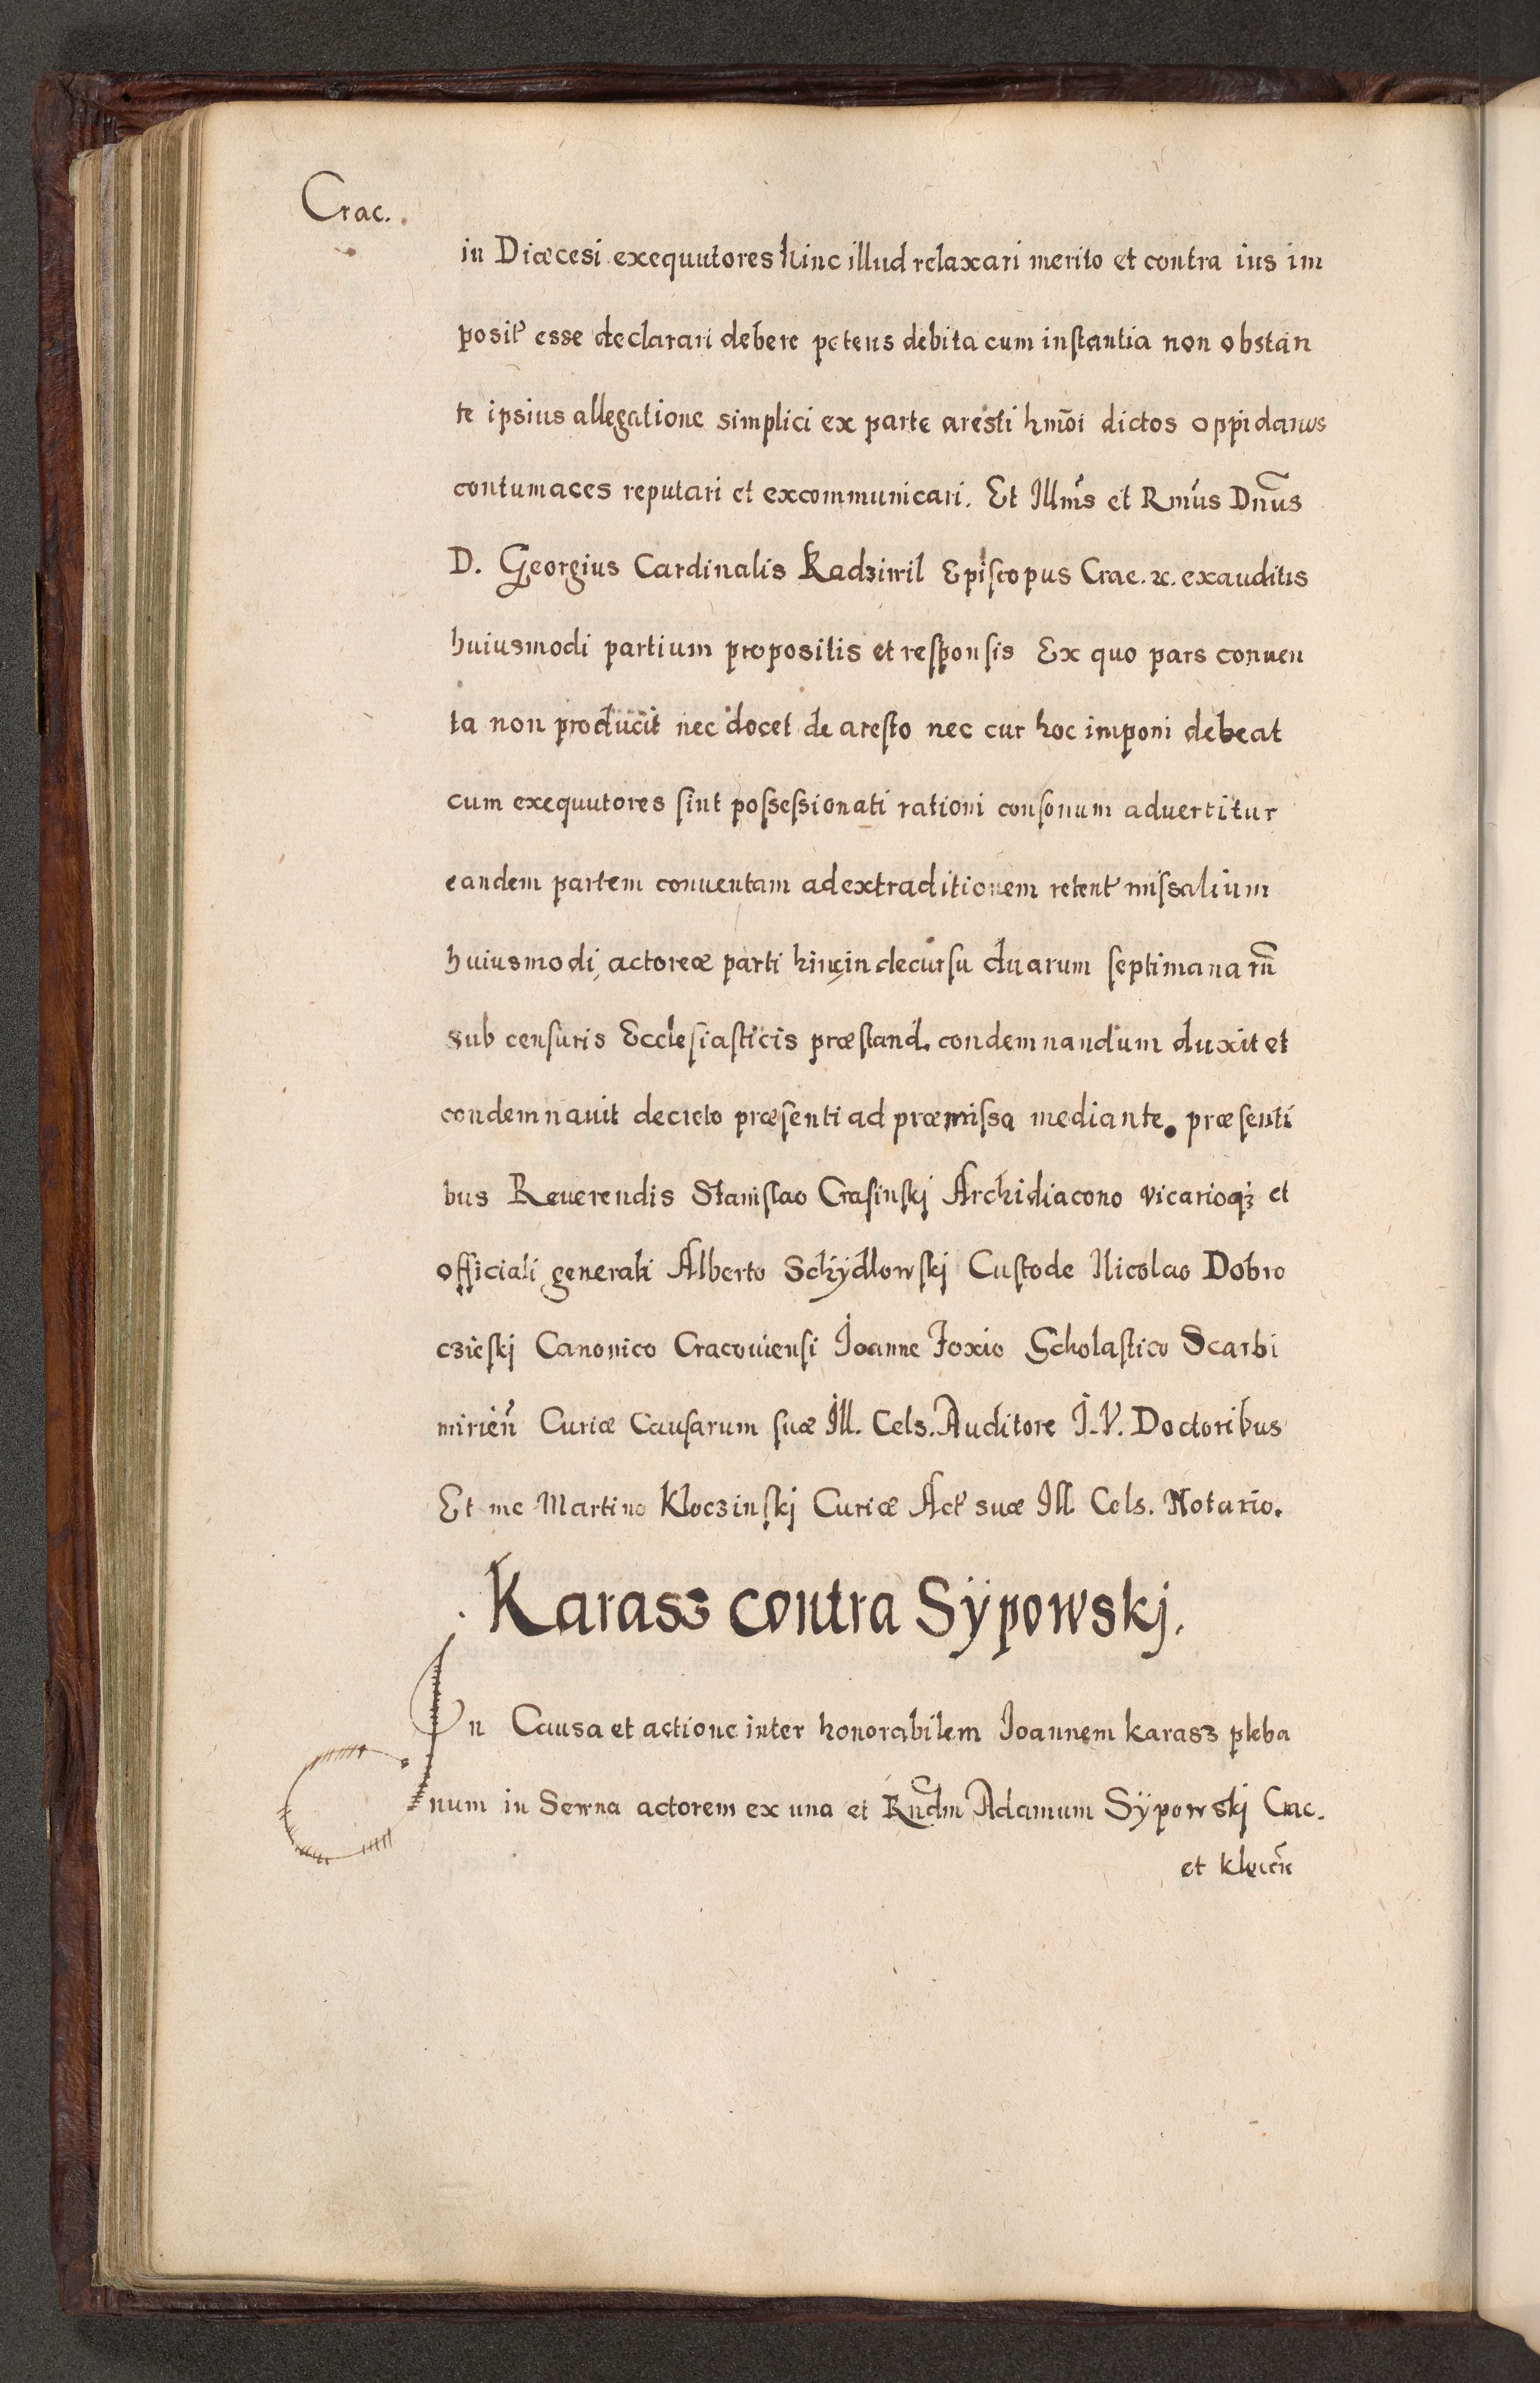 Crac.
in Diœcesi exequutores hinc illud relaxari merito et contra ius im
posit' esse declarari debere petens debita cum instantia non obstan
te ipsius allegatione simplici ex parte aresti hmōi dictos oppidanos
contumaces reputari et excommunicari. Et Illm̃s et Rmūs Dnūs
D. Georgius Cardinalis Radziwil Episcopus Crac. &c. exauditis
huiusmodi partium propositis et responsis Ex quo pars conuen
ta non producit nec docet de aresto nec cur hoc imponi debeat
cum exequutores sint possessionati rationi consonum aduertitur
eandem partem conuentam ad extraditionem retent' missalium
huiusmodi actoreæ parti hinc in decursu duarum septimanarū
sub censuris Ecclesiasticis præstand. condemnandum duxit et
condemnauit decreto præsenti ad præmissa mediante. præsenti
bus Reuerendis Stanislao Crasinskj Archidiacono vicarioq3 et
officiali generali Alberto Schÿdlowskj Custode Nicolao Dobro
czieskj Canonico Cracouiensi Ioanne Foxio Scholastico Scarbi
mirień Curiæ Causarum suæ Ill. Cels. Auditore I.V. Doctoribus
Et me Martino Kloczinskj Curiæ Act' suæ Ill. Cels. Notario.
Karasz contra Sÿpowskj.
In Causa et actione inter honorabilem Ioannem karasz pleba
num in Sewna actorem ex una et Rndm̃ Adamum Sÿpowskj Crac.
et